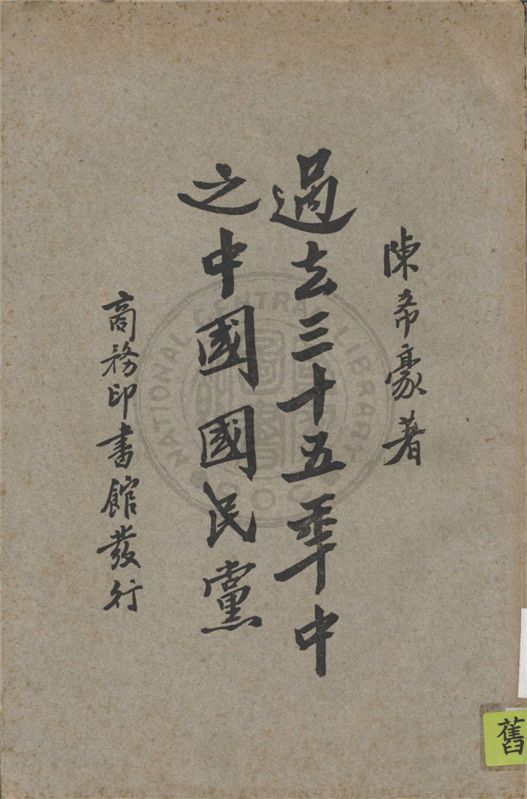 陳希豪著
過去三十五年中
之中國國民黨
商務印書館發行
NATIONAL CENTRAL LIBRARY
舊